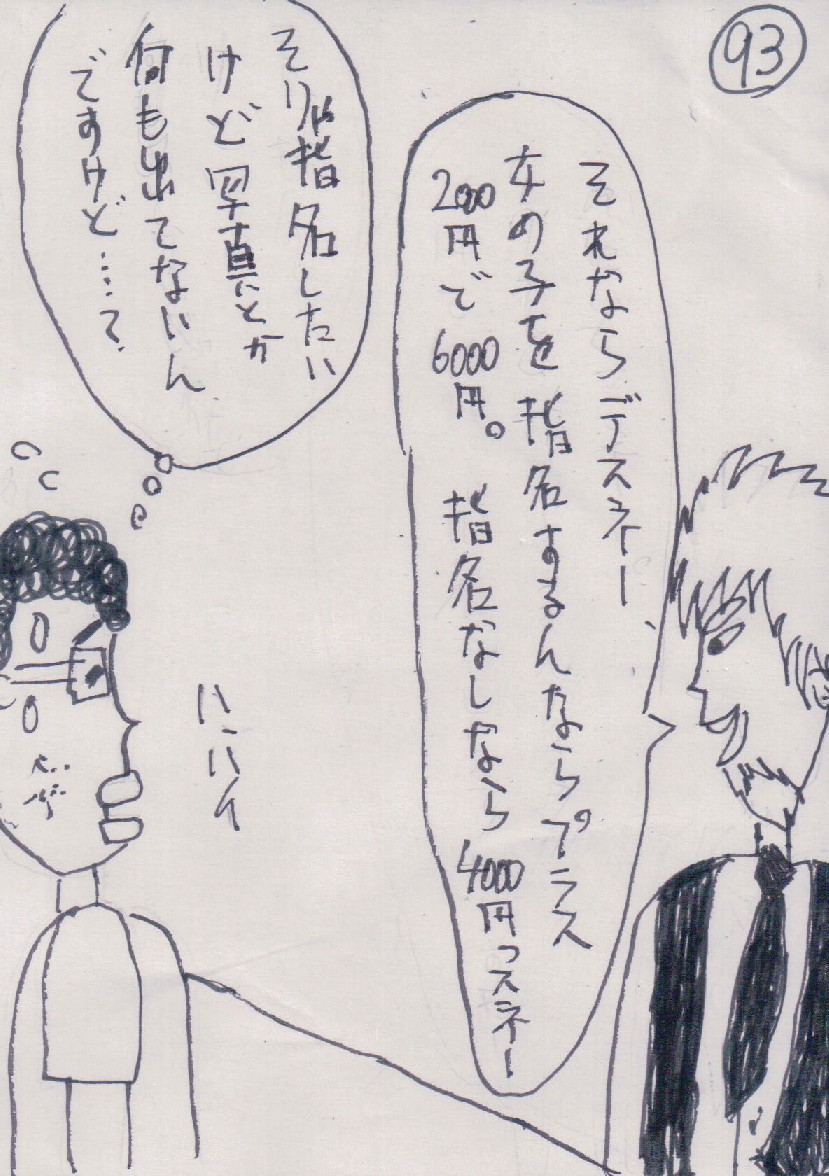 93
それならデスネー、
女の子を指名するんならプラス
2000円で6000円。指名なしなら4000円っスネー
そりゃ指名したい
けど写真とか
何も出てないん
ですけど…？
ハ、ハイ